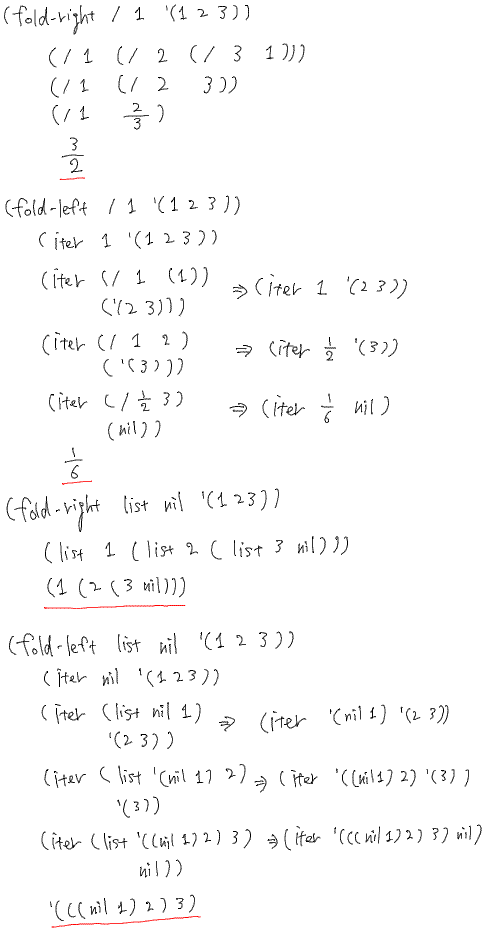 (fold-right / 1 '(1 2 3))
(/ 1 (/ 2 (/ 3 1)))
(/ 1 (/ 2 3))
(/ 1 2/3)
3/2
(fold-left / 1 '(1 2 3))
(iter 1 '(1 2 3))
(iter (/ 1 (1)) ⇒ (iter 1 '(2 3))
('(2 3)))
(iter (/ 1 2) ⇒ (iter 1/2 '(3))
('(3)))
(iter (/ 1/2 3) ⇒ (iter 1/6 nil)
(nil))
1/6
(fold-right list nil '(1 2 3))
(list 1 (list 2 (list 3 nil)))
(1 (2 (3 nil)))
(fold-left list nil '(1 2 3))
(iter nil '(1 2 3))
(iter (list nil 1) ⇒ (iter '(nil 1) '(2 3))
'(2 3))
(iter (list '(nil 1) 2) ⇒ (iter '((nil 1) 2) '(3))
'(3))
(iter (list '((nil 1) 2) 3) ⇒ (iter '(((nil 1) 2) 3) nil)
nil))
'(((nil 1) 2) 3)